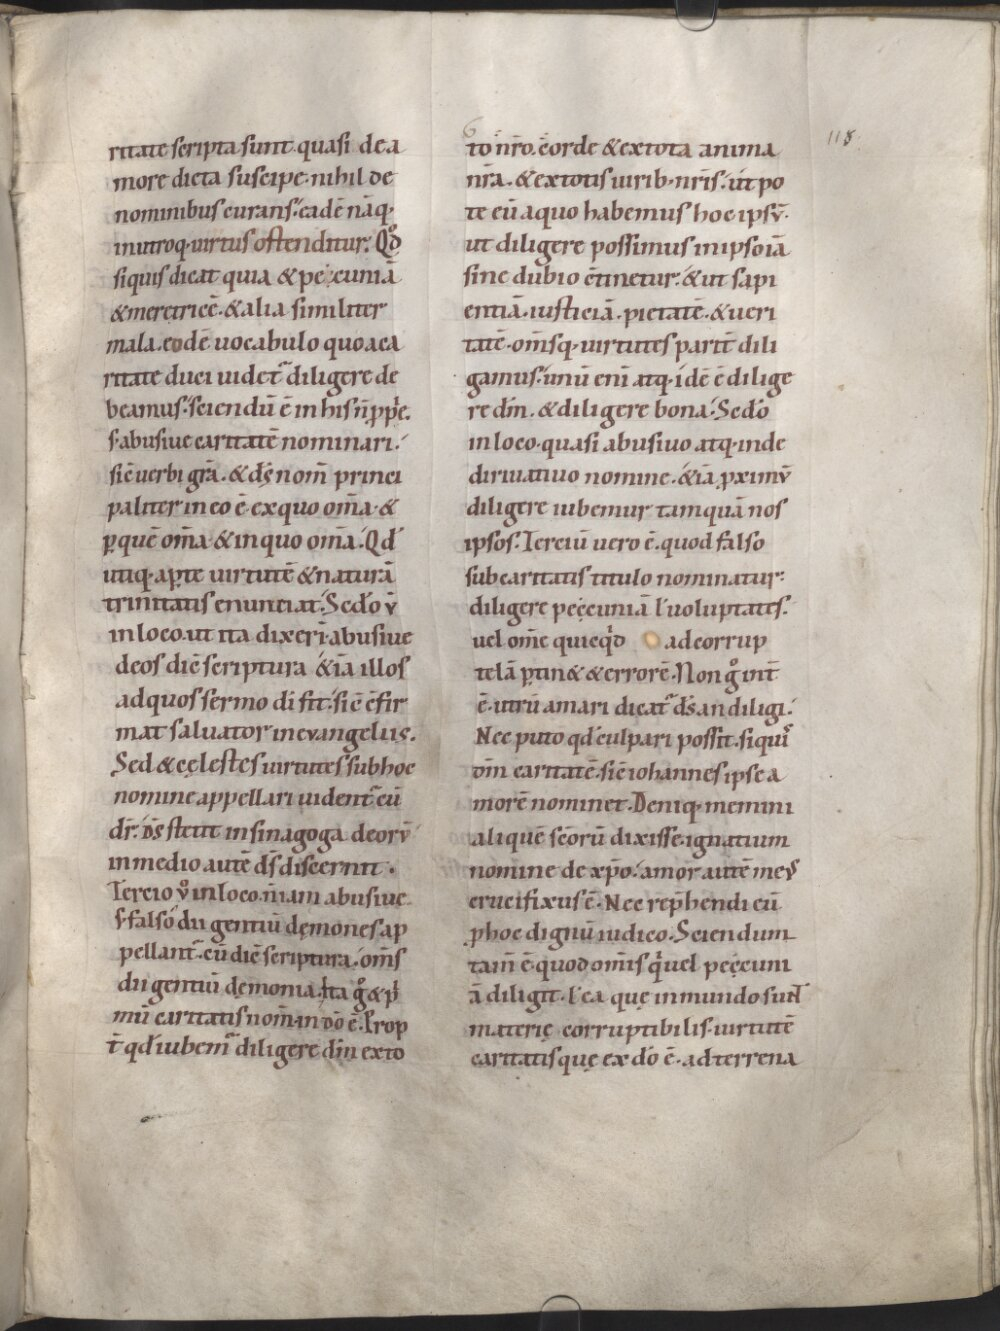 ritate scripta sunt quasi de a
more dicta suscipe· nihil de
nominibus curans· eadē nāq·
in utroq· uirtus ostenditur· Qd̊
siquis dicat quia & pęcuniā
& meretricē· & alia similiter
mala· eodē uocabulo quo a ca
ritate duci uidet̄ diligere de
beamus· sciendū ē in his ñ ꝓp͛e·
s· abusiue caritatē nominari·
sic̄ uerbi grā· & dꝭ nom̄ princi
paliter in eo ē· ex quo om̄a· &
ꝑ quē om̄a· & in quo om̄a· Qd́
utiq· aꝑte uirtutē & naturā
trinitatis enunciat· Sedo v̄
in loco· ut ita dixeri· abusiue
deos dic̄ scriptura & iā illos
ad quos sermo dī fit· sic̄ c̄fir
mat saluator in euangeliis·
Sed & cęlestes uirtutes sub hoc
nomine appellari uident̄ cū
dr̄· ds̄ stetit in sinagoga deorū
in medio autē ds̄ discernit·
Tercio v̊ in loco· m̄ iam abusiue
s· falso dii gentiū dęmones ap
pellant̄· cū dic̄ scriptura· om̄s
dii gentiū dęmonia· Ita g̊ & p͛
mū caritatis nom̄· in dō ē· Prop
t̄ qd́ iubem̄ diligere dm̄ ex to
to nr̄o· corde & ex tota anima
nr̄a· & ex totis uirib· nr̄is· ut po
te eū a quo habemus hoc ipsū·
ut diligere possimus in ipso iā
sine dubio c̄tinetur· & ut sapi
entiā· iusticiā· pietatē· & ueri
tatē· om̄sq· uirtutes parit̄ dili
gamus· unū enī atq· idē ē dilige
re dm̄· & diligere bona· Sedo
in loco· quasi abusiuo atq· inde
diriuatiuo nomine· & iā ꝓximū
diligere iubemur tamquā nos
ipsos· Terciū uero ē· quod falso
sub caritatis titulo nominatur·
diligere pęcuniā l' uoluptates·
uel om̄e quicq͛d ad corrup
telā ꝑtin& & errorē· Non g̊ int̄
ē· utrū amari dicat̄ ds̄ an diligi·
Nec puto qd́ culpari possit· siqui͛
dm̄ caritatē· sic̄ iohannes ipse a
morē nominet· Deniq· memini
aliquē sc̄orū dixisse· ignatium
nomine de xp̄o· amor̄ autē meꝰ
crucifixus ē· Nec rep̄hendi eū
ꝓ hoc dignū iudico· Sciendum
tam̄ ē· quod om̄is q͛ uel pęcuni
ā diligit· l' ea quę in mundo sunt
materię corruptibilis· uirtutē
caritatis quę ex dō ē· ad terrena
118